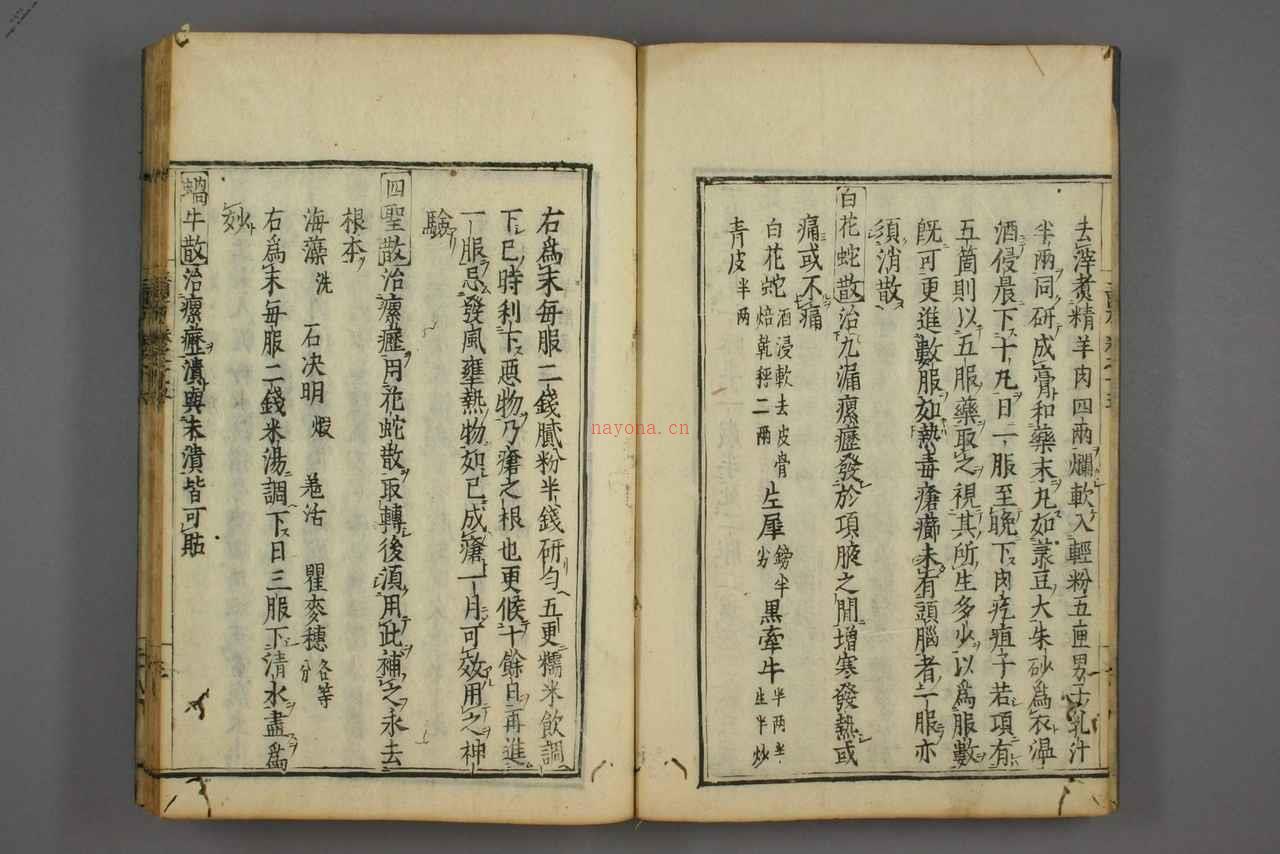 去滓煑精羊肉四兩爛軟入輕粉五匣男子乳汁
半兩同研成膏和藥末丸如菉豆大朱砂爲衣温
酒侵晨下十丸日一服至晚下肉疙疸子若項有
五箇則以五服藥取之視其所生多少以爲服數
既可更進數服如熱毒瘡癤未有頭腦者一服亦
須消散
白花蛇散治九漏瘰癧發於項腋之間増寒發熱或
痛或不痛
白花蛇酒浸軟去皮骨焙乾秤二兩 生犀鎊半 黒牽牛半兩半生半炒
青皮半兩
右爲末毎服二錢膩粉半錢研勻五更糯米飲調
下巳時利下惡物乃瘡之根也更候十餘日再進
一服忌發風壅熱物如已成瘡一月可效用之神
驗
四聖散治瘰癧用花蛇散取轉後湏用此補之永去
根本
海藻洗 石决明煆 羗活 瞿麥穗各等分
右爲末毎服二錢米湯調下日三服下清水盡爲
妙
蝸牛散治瘰癧潰與未潰皆可貼
nayona.cn